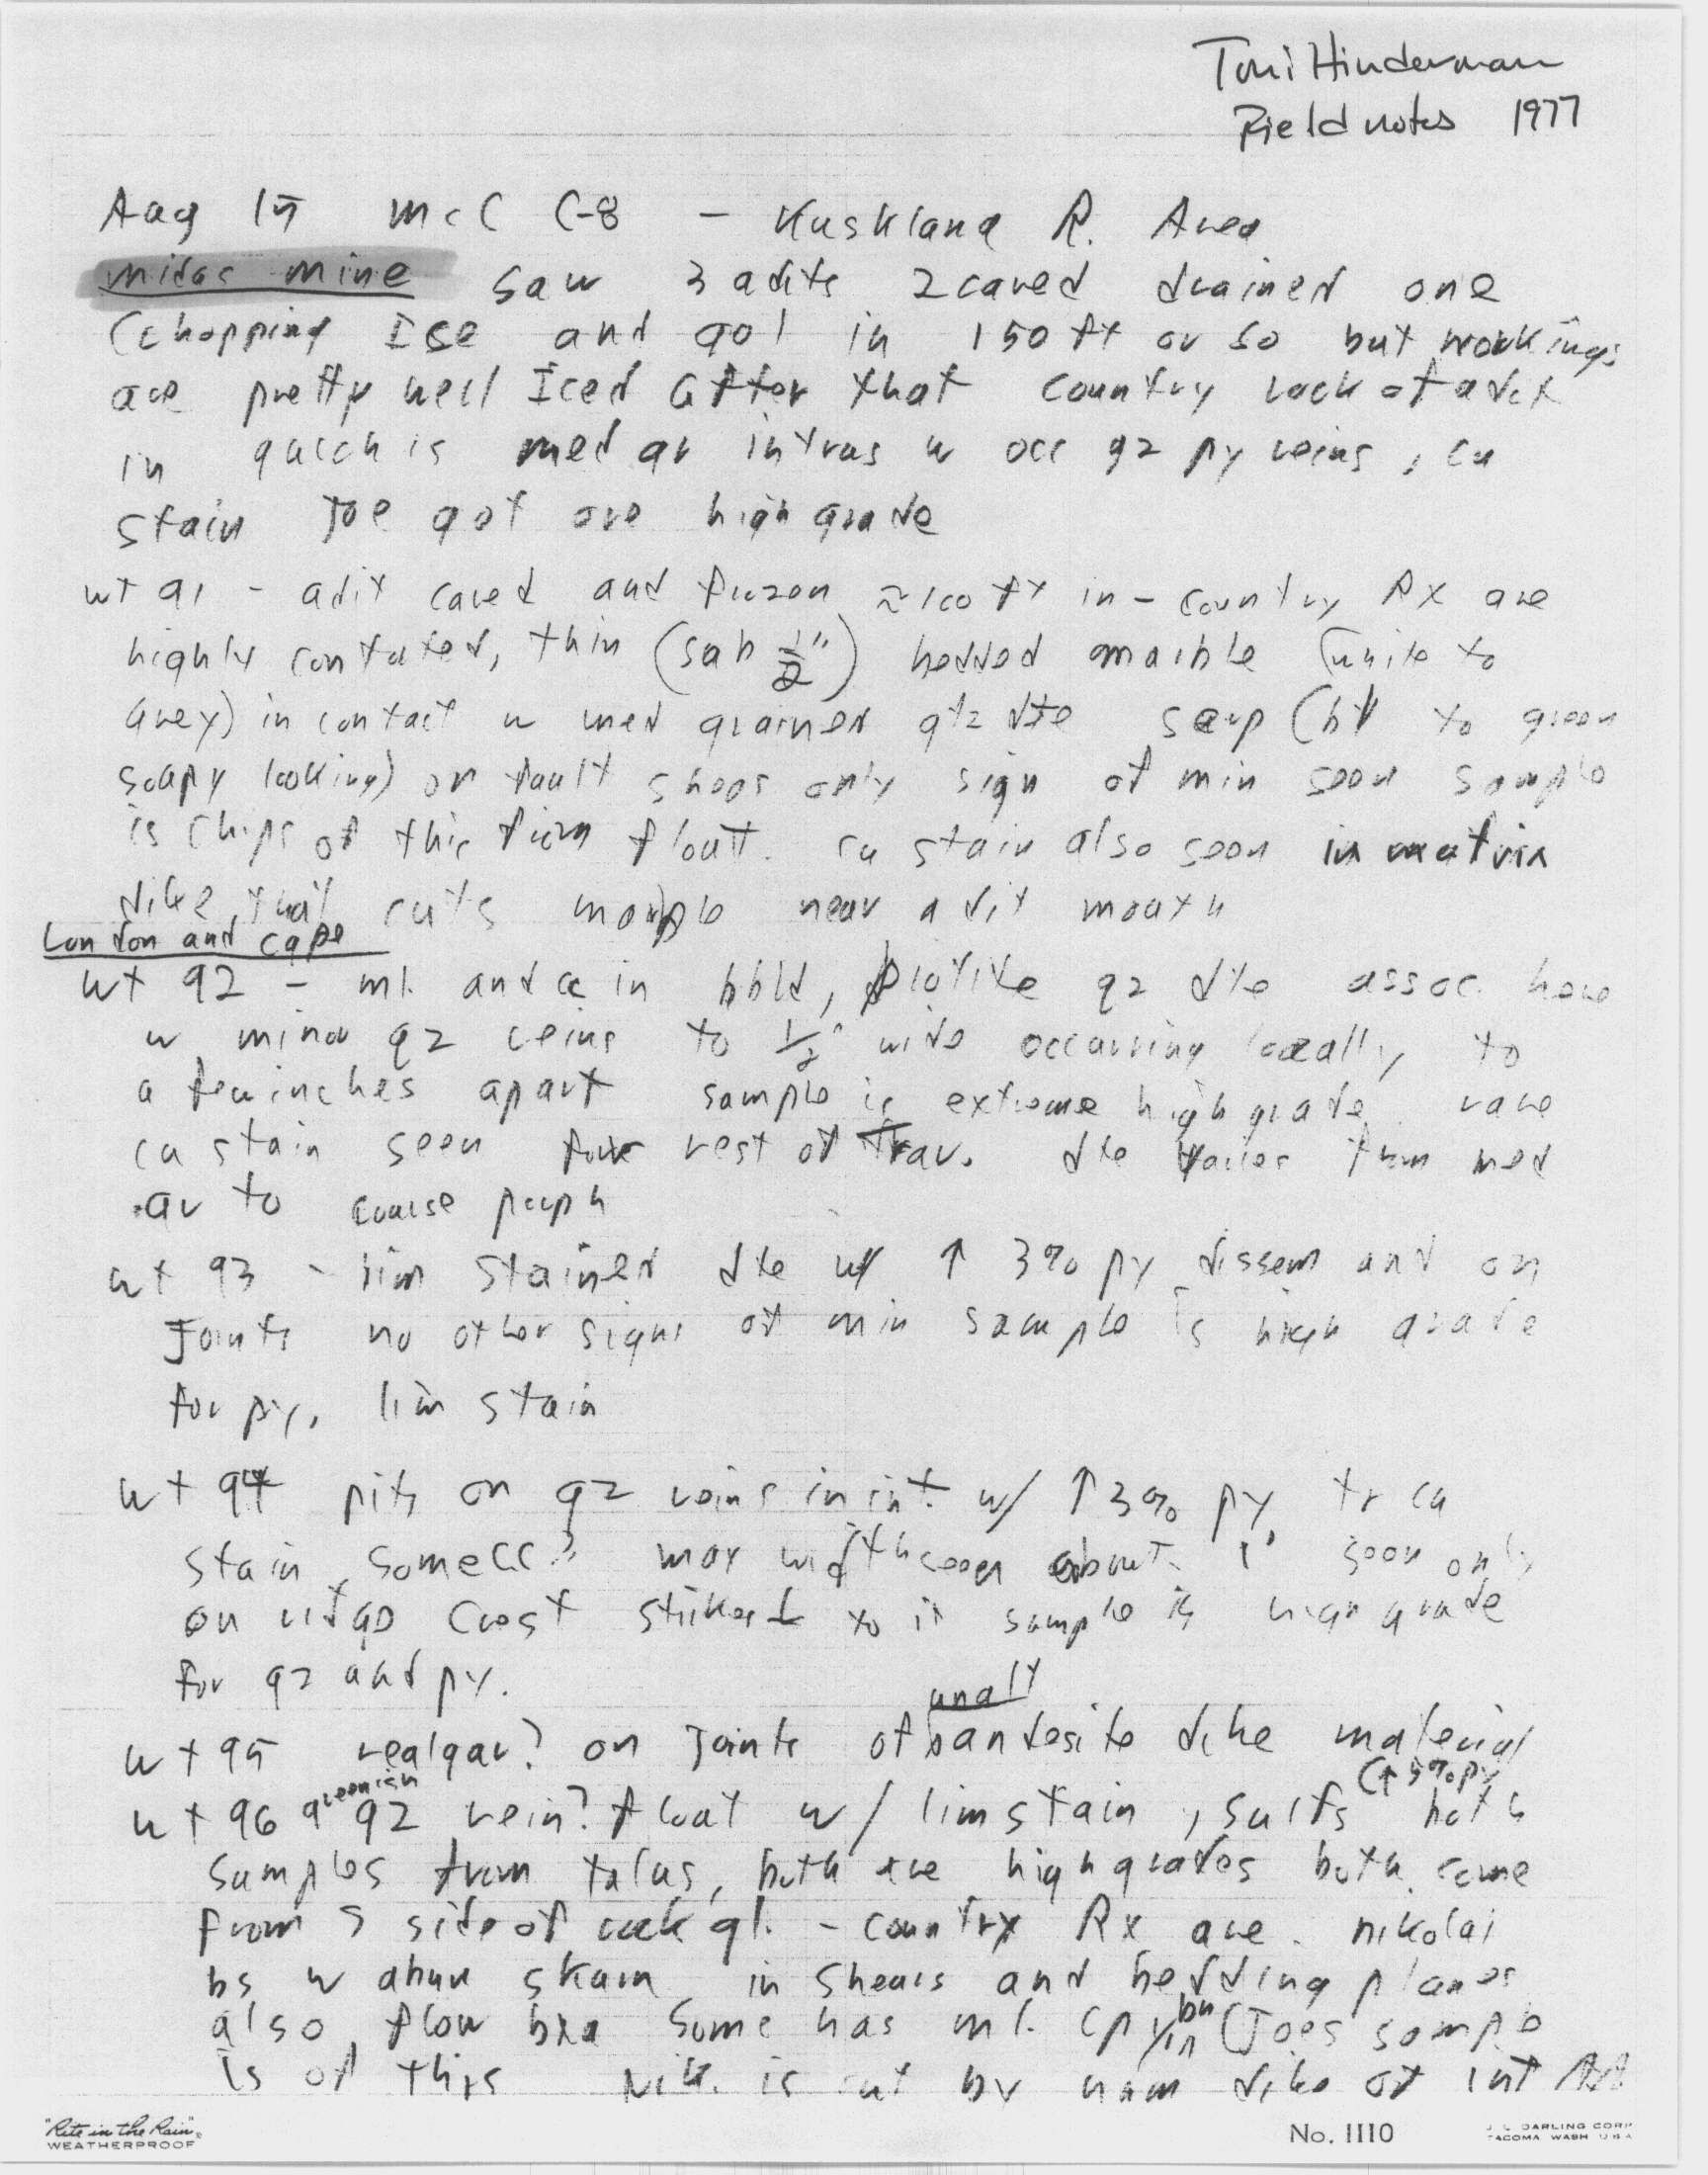 Toni Hinderman
Field notes 1977
Aug 15 McC C-8 - Kuskulana R. Area
midas mine saw 3 adits 2 caved drained one
(chopping Ice and got in 150 ft or so but workings
are pretty well Iced after that country rock of adit
in gulch is med gr intrus w occ qz py veins, cu
stain Joe got ore high grade
wt 91 - adit caved and frozen ≈100 ft in - country Rx are
highly contorted, thin (sub 1/2") bedded marble (white to
grey) in contact w med grained qtz dte serp (bk to green
soapy looking) on fault shoes only sign of min seen sample
is chips of this from float. cu stain also seen in
dike that cuts marble near adit mouth
London and cape
wt 92 - ml. and cc in hbld, biotite qz dte assoc. here
w minor qz veins to 1/2" wide occurring locally to
a few inches apart sample is extreme high grade rare
cu stain seen for rest of trav. dte varies from med
gr to coarse porph
wt 93 - lim stained dte w/ ↑ 3% py dissem and on
Joints no other signs of min sample is high grade
for py, lim stain
wt 94 pits on qz veins in int. w/ ↑3% py, tr cu
stain, some cc? max width seen about 1' seen only
on ridge crest strikes ⊥ to it sample is high grade
for qz and py.
unalt
wt 95 realgar? on Joints of andesite dike material
wt 96 greenish qz vein? float w/ lim stain, sulfs (↑5% py) both
samples from talus, both are high grades both come
from S side of rock gl. - country Rx are nikolai
bs w abun skarn in shears and bedding planes
also flow bxa some has ml. cpy, bn in (Joes sample
is of this Nik. is cut by num dike of int
"Rite in the Rain"
WEATHERPROOF
No. 1110
J. L. DARLING CORP.
TACOMA, WASH. U.S.A.